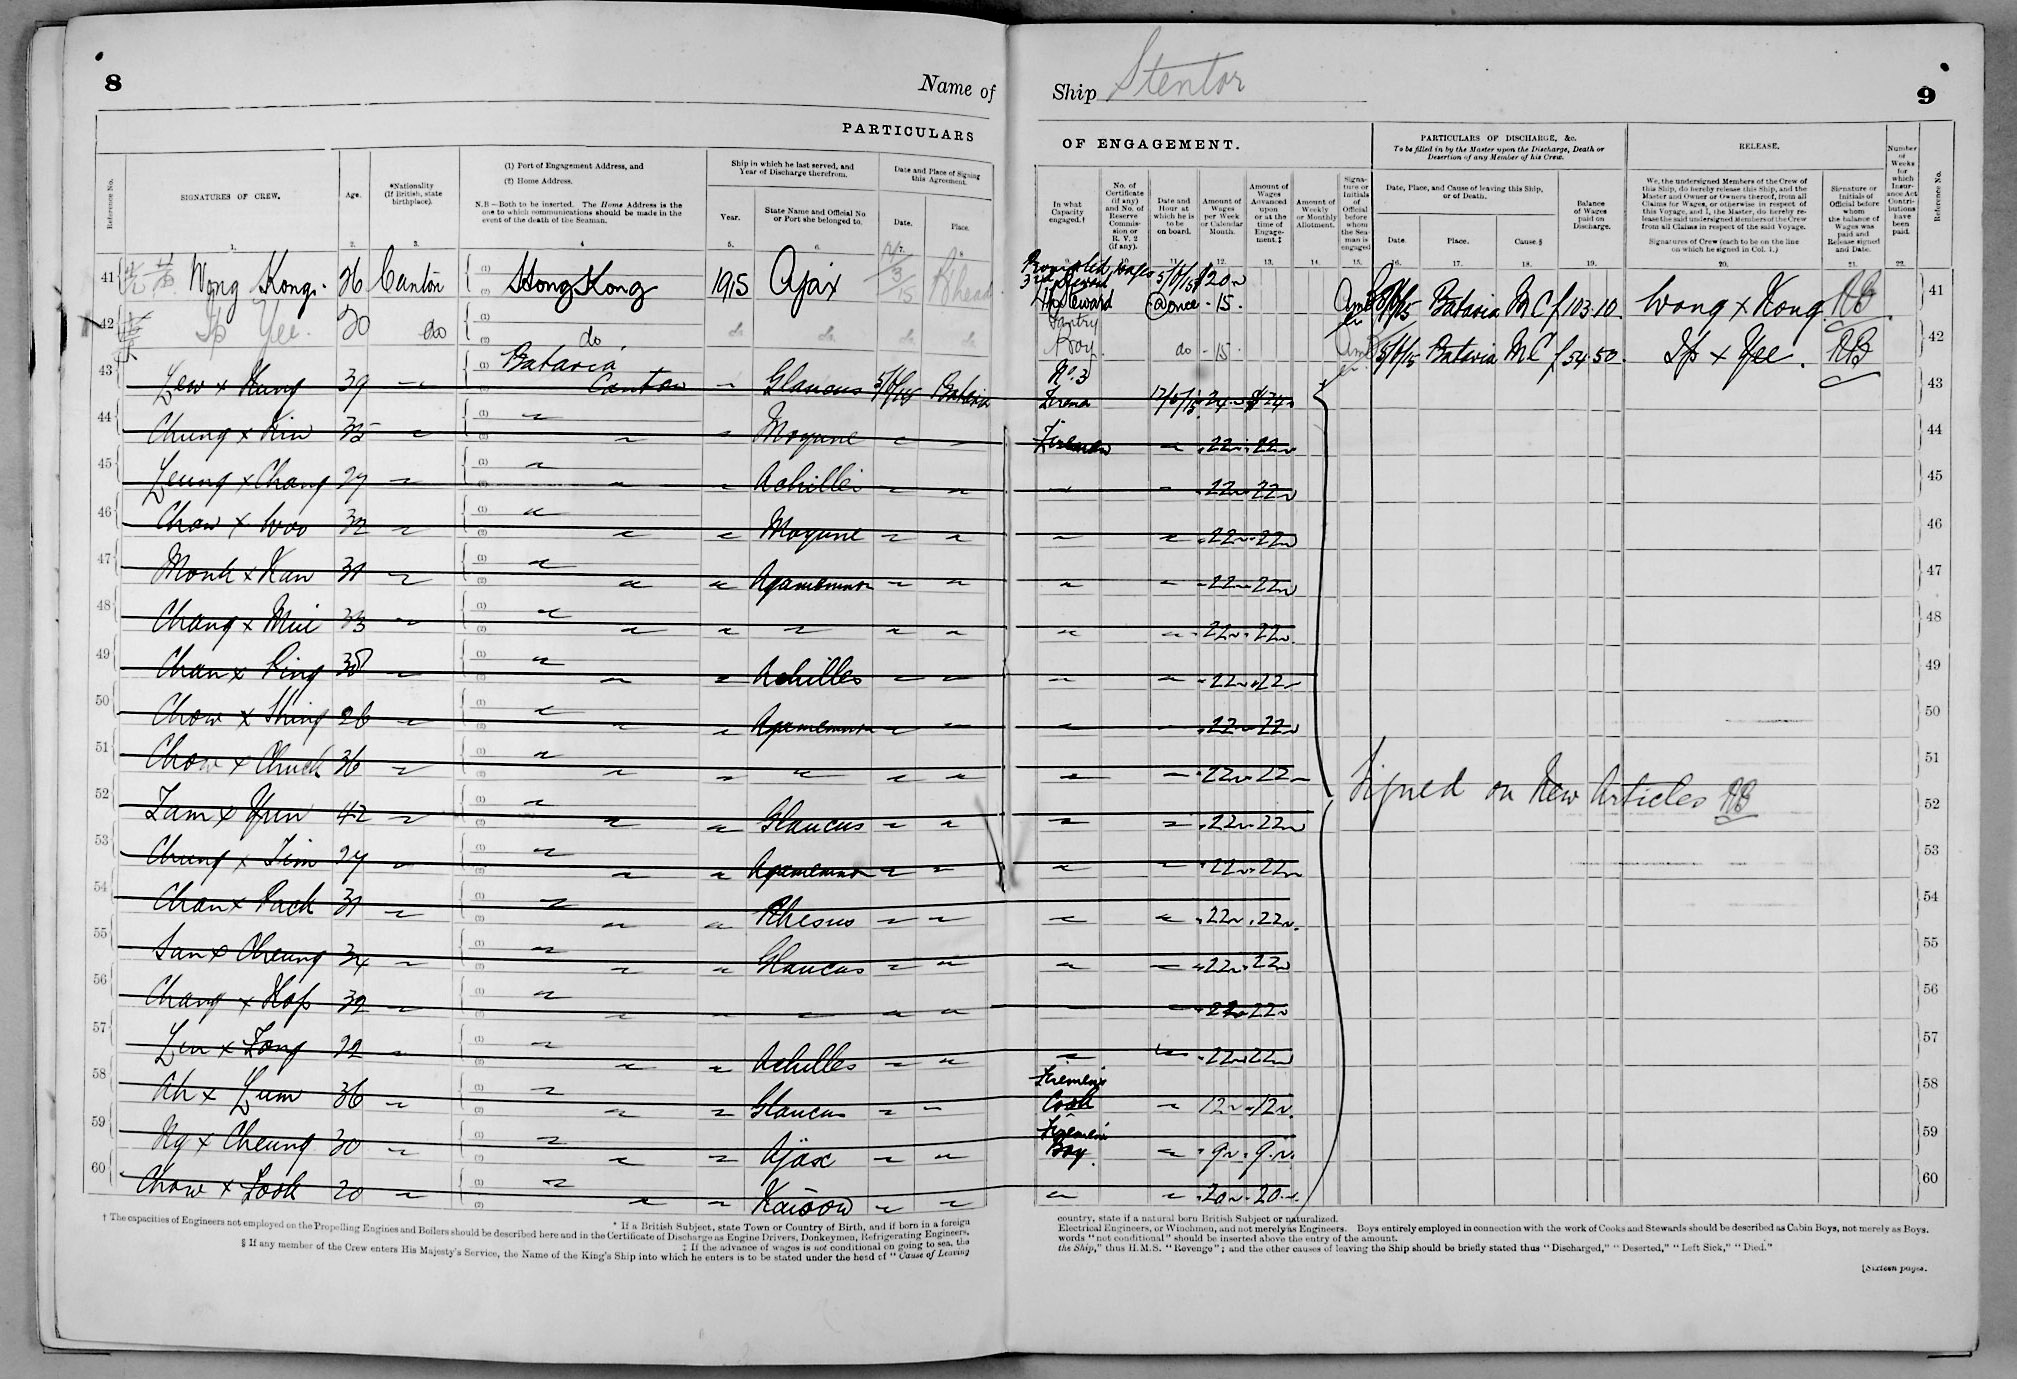 8
Name of
Ship Stentor
9
PARTICULARS
OF ENGAGEMENT.
PARTICULARS OF DISCHARGE, &c.
To be filled in by the Master upon the Discharge, Death or Desertion of any Member of his Crew.
RELEASE.
Reference No.
SIGNATURES OF CREW.
Age.
*Nationality (If British, state birthplace).
(1) Port of Engagement Address, and
(2) Home Address.
N.B—Both to be inserted. The Home Address is the one to which communications should be made in the event of the death of the Seaman.
Ship in which he last served, and Year of Discharge therefrom.
Year.
State Name and Official No or Port she belonged to.
Date and Place of Signing this Agreement.
Date.
Place.
In what Capacity engaged.†
No. of Certificate (if any) and No. of Reserve Commission or R. V. 2 (if any).
Date and Hour at which he is to be on board.
Amount of Wages per Week or Calendar Month.
Amount of Wages Advanced upon or at the time of Engagement.‡
Amount of Weekly or Monthly Allotment.
Signature or Initials of Official before whom the Seaman is engaged
Date, Place, and Cause of leaving this Ship, or of Death.
Date.
Place.
Cause.§
Balance of Wages paid on Discharge.
We, the undersigned Members of the Crew of this Ship, do hereby release this Ship, and the Master and Owner or Owners thereof, from all Claims for Wages, or otherwise in respect of this Voyage, and I, the Master, do hereby release the said undersigned Members of the Crew from all Claims in respect of the said Voyage.
Signatures of Crew (each to be on the line on which he signed in Col. 1.)
Signature or Initials of Official before whom the balance of Wages was paid and Release signed and Date.
Number of Weeks for which Insurance Act Contributions have been paid.
Reference No.
1. 2. 3. 4 5. 6. 7. 8. 9. 10. 11. 12. 13. 14. 15. 16. 17. 18. 19. 20. 21. 22.
Promoted wages 5/6/15 $20
3rd Steward
41 Wong Kong. 26 Canton (1) (2) Hong Kong 1915 Ajax 12/3/15 B'head Steward @ once 15. 5/6/15 Batavia M C f 103.10. Wong x Kong. AB 41
42 Ip Yee. 30 do (1) (2) do do do do do Pantry Boy. do 15. 5/6/15 Batavia M C f 54.50. Ip x Yee. AB 42
43 Lew x Kung 39 " (1) Batavia (2) Canton " Glaucus 5/6/15 Batavia No. 3 Firema 12/6/15 24 $ 24 43
44 Chung x Kin 35 " (1) " (2) " " Moyune " " Fireman " 22 22 44
45 Leung x Chang 29 " (1) " (2) " " Achilles " " " " 22 22 45
46 Chaw x Woo 32 " (1) " (2) " " Moyune " " " " 22 22 46
47 Monk x Kan 31 " (1) " (2) " " Agamemnon " " " " 22 22 47
48 Chang x Mui 33 " (1) " (2) " " " " " " " 22 22 48
49 Chan x Ping 38 " (1) " (2) " " Achilles " " " " 22 22 49
50 Chow x Shing 26 " (1) " (2) " " Agamemnon " " " " 22 22 50
51 Chow x Chuck 36 " (1) " (2) " " " " " " " 22 22 51
Signed on New Articles AB
52 Tam x Yun 42 " (1) " (2) " " Glaucus " " " " 22 22 52
53 Chung x Tim 29 " (1) " (2) " " Agamemnon " " " " 22 22 53
54 Chan x Pack 31 " (1) " (2) " " Rhesus " " " " 22 22 54
55 San x Cheung 34 " (1) " (2) " " Glaucus " " " " 22 22 55
56 Chang x Hop 32 " (1) " (2) " " " " " " " 22 22 56
57 Lin x Tong 32 " (1) " (2) " " Achilles " " " " 22 22 57
58 Ah x Lum 36 " (1) " (2) " " Glaucus " " Firemen's Cook " 12 12 58
59 Ng x Cheung 30 " (1) " (2) " " Ajax " " Firemen's Boy " 9 9 59
60 Chow x Look 20 " (1) " (2) " " " " " " 20 20 60
† The capacities of Engineers not employed on the Propelling Engines and Boilers should be described here and in the Certificate of Discharge as Engine Drivers, Donkeymen, Refrigerating Engineers,
* If a British Subject, state Town or Country of Birth, and if born in a foreign
‡ If the advance of wages is not conditional on going to sea, the
§ If any member of the Crew enters His Majesty's Service, the Name of the King's Ship into which he enters is to be stated under the head of "Cause of Leaving
country, state if a natural born British Subject or naturalized.
Electrical Engineers, or Winchmen, and not merely as Engineers. Boys entirely employed in connection with the work of Cooks and Stewards should be described as Cabin Boys, not merely as Boys.
words "not conditional" should be inserted above the entry of the amount.
the Ship," thus H.M.S. "Revenge"; and the other causes of leaving the Ship should be briefly stated thus "Discharged," "Deserted," "Left Sick," "Died."
[Sixteen pages.